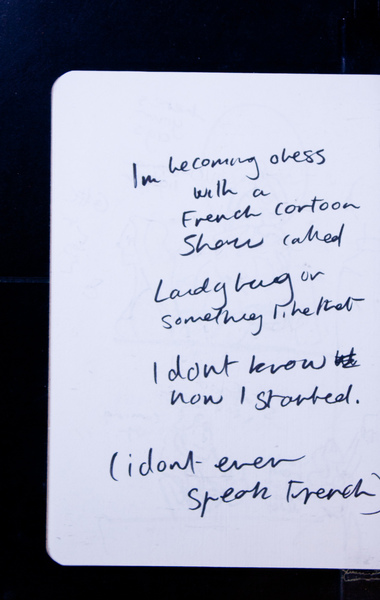 Im becoming obess
with a
French cartoon
Show called
Laidybug or
something like that
I dont know
how I started.
(i dont even
speak French)